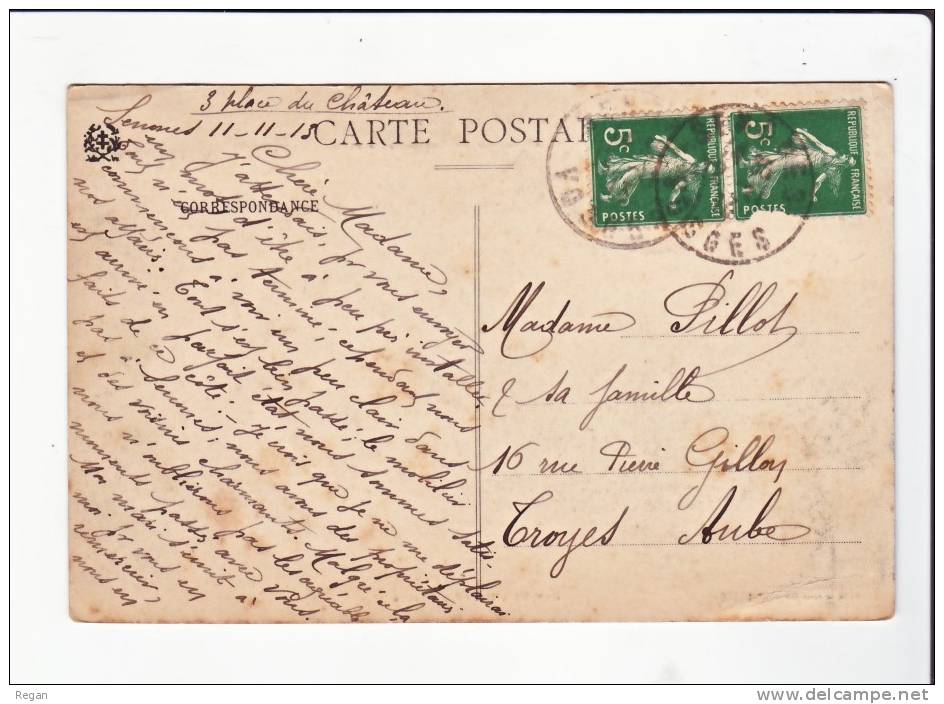 3 place du Château.
Senones 11-11-15
CARTE POSTA
CORRESPONDANCE
Chère Madame,
J'attendais pr vous envoyer
mot d'être à peu près installés,
n'est pas terminé, cependant nous
commençons à voir un peu clair dans
nos affaires. Tout s'est bien passé; le mobilier
est arrivé en parfait état nous sommes satis-
faits de ce côté. - Je crois que je ne me déplairai
pas à Senones; nous avons des propriétaires
et des voisins charmants. Malgré cela
nous n'oublierons pas les agréables
moments passés avec vous.
Mon mari s'unit à
moi pr vous en
remercier,
nous en
Madame Pillot
& sa famille
16 rue Pierre Gillon
Troyes Aube
5c
REPUBLIQUE FRANÇAISE
POSTES
5c
REPUBLIQUE FRANÇAISE
POSTES
VOSGES
Regan
www.delcampe.net